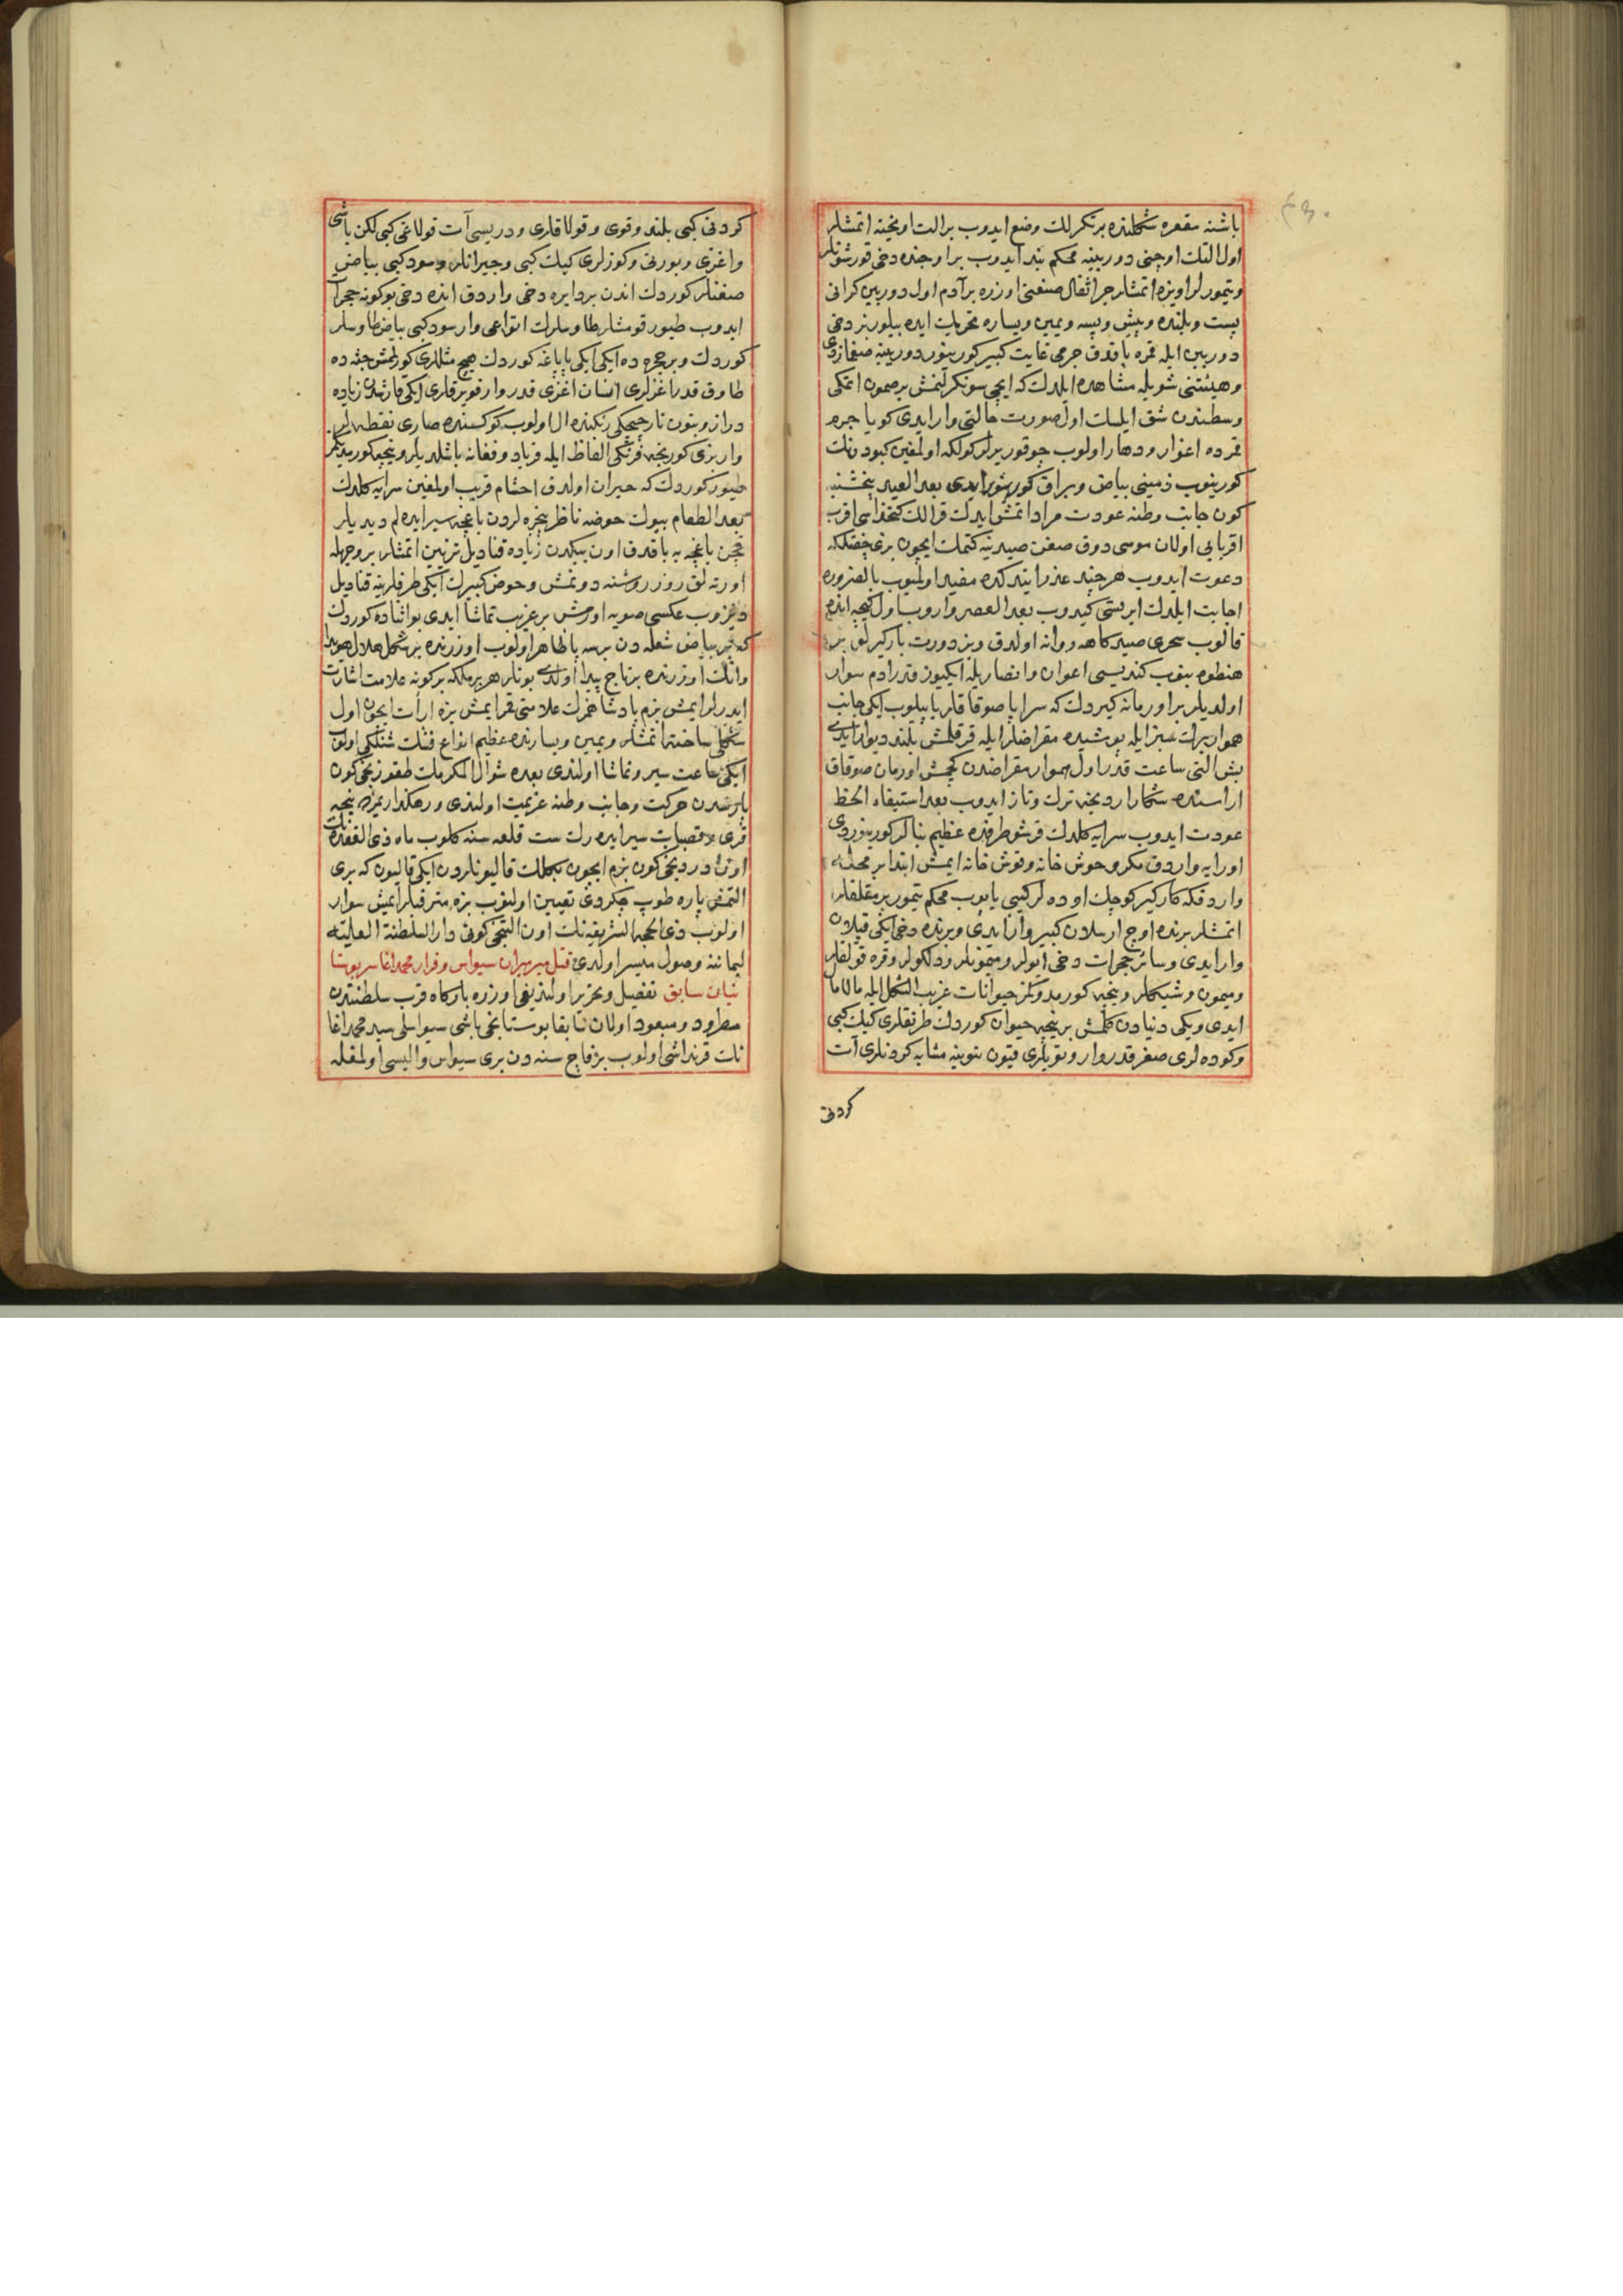 باشنه مقعره شکلنده بر تکرلك وضع ایدوب بر الت اویخته اتمشلر
اول التك اوجنی دوربینه محکم بند ایدوب بر اوجنده دخی قورشونلر
وتیمورلر اویزه اتمشلر جر اثقال صنعتی اوزره بر آدم اول دوربین کرانی
پست وبلنده وپیش وپسه ویمین ویساره تحریك ایده بیلور بز دخی
دوربین ایله قمره باقدق جرمی غایت کبیر کورینور دوربینه صغازدی
وهیئتنی شویله مشاهده ایلدك که ایچی سونکرلنمش بر صمون اتمکی
وسطندن شق ایلسك اول صورت حالتی وار ایدی کویا جرم
قمرده اغوار ودهار اولوب چوقور یرلر کولکه اولمغین کبود رنك
کورینوب زمینی بیاض وبراق کورینور ایدی بعد العید پنجشنبه
کون جانب وطنه عودت مراد اتمش ایدك قرالك کتخداسی اقرب
اقرباسی اولان موسی دوق صغن صیدینه کتمك ایچون بزی
دعوت ایدوب هر چند عذر ایتدکده مفید اولمیوب بالضروره
اجابت ایلدك ایرتسی کیدوب بعد العصر واروب اول کیجه انده
قالوب سحری صیدکاهه روانه اولدق وبز دورت بارکیرلق بر
هنطوه بنوب کندیسی اعوان وانصاریله ایکیوز قدر ادم سوار
اولدیلر بر اورمانه کیردك که سراپا صوقاقلر یاپیلوب ایکی جانب
هموار برك سبز ایله پوشیده مقراضلر ایله قرقلمش بلند دیوار ایدی
بش التی ساعت قدر اول هموار مقراضدن کچمش اورمان صوقاق
اراسنده شکار اردینجه ترك وتاز ایدوب بعد استیفاء الحظ
عودت ایدوب سرایه کلدك قرشو طرفنده عظیم بنالر کورینوردی
اورایه واردق مکر وحوش خانه وقوش خانه ایمش ابتدا بر محلنه
واردقکه کارکیر کوچك اوده لر کیبی یاپوب محکم تیمور پرمقلقلر
اتمشلر برنده اوچ ارسلان کبیر وار ایدی وبرنده دخی ایکی قپلان
وار ایدی وسائر حجرات دخی ایولر ومیمونلر ودلکولر وقره قولقلر
ومیمون وشبکلر ونیجه کورمدوکمز حیوانات غریب الشکل ایله مالامال
ایدی ویکی دنیادن کلمش بر نیجه حیوان کوردك طرنقلری کیك کبی
وکوده لری صغر قدر وار وتویلری قیون یوینه مشابه کردنلری آت
کردنی
کردنی کبی بلند وقوی وقولاقلری ودریسی آت قولاغی کبی لکن باشی
واغزی وبورنی وکوزلری کیك کبی وجیرانلر وسود کبی بیاض
صغنلر کوردك اندن بر دایره دخی واردق انده دخی بو کونه حجرات
ایدوب طیور قومشلر طاوسلرك انواعی وار سود کبی بیاض طاوسلر
کوردك وبر حجره ده ایکی ایکی پاپاغه کوردك هیچ مثللری کورلمش جثه ده
طاوق قدر اغزلری انسان اغزی قدر وار قویرقلری ایکی قارشدن زیاده
دراز وبتون نار چیچکی رنکنده ال اولوب کوکسنده صاری نقطه لر
وار بزی کورنجه فرنکی الفاظ ایله فریاد وفغانه باشلدیلر ونیجه کورمدیکمز
طیور کوردك که حیران اولدق اخشام قریب اولمغین سرایه کلدك
بعد الطعام بیوك حوضه ناظر پنجره لردن باغچه سیر ایده لم دیدیلر
چن باغچه یه باقدق اون بیکدن زیاده قنادیل تزیین اتمشلر بر وجهله
اورته لق روز روشنه دونمش وحوض کبیرك ایکی طرفلرینه قنادیل
دیزوب عکسی صویه اورمش بر غریب تماشا ایدی بو اثناده کوردك
که بر بیاض شعله دن برسه با ظاهر اولوب اوزرنده بر شکل هلال هویدا
وانك اوزرنده بر تاج پیدا اولدی بونلر هر بر ملکه بر کونه علامت اشارت
ایدرلر ایمش بزم پادشاهمزك علامتی قمر ایمش بزه ارأت ایچون اول
شکلی ساخته اتمشلر ویمین ویسارنده عظیم انواع فشنك شنلکی اولوب
ایکی ساعت سیر وتماشا اولندی بعده شوال المکرمك طقوزنجی کون
پارشدن حرکت وجانب وطنه عزیمت اولندی ورهکذاریمزده نیجه
قری وقصبات سیر ایده رك ست قلعه سنه کلوب ماه ذی القعده نك
اون دردنجی کون بزم ایچون بکلك قالیونلردن ایکی قالیون که بری
التمش پاره طوپ چکردی تعیین اولنوب بزه مترقبلر ایمش سوار
اولوب ذی الحجه الشریفه نك اون التنجی کونی دار السلطنة العلیه
لیماننه وصول میسر اولدی قتل میرمیران سیواس وفرار محمد اغا سر بوستا
نیان سابق تفصیل وتحریر اولندیغی اوزره بارکاه قرب سلطنتدن
مطرود ومبعود اولان سابقا بوستانجی باشی سیواسلی سید محمد اغا
نك قرنداشی اولوب بر قاچ سنه دن بری سیواس والیسی اولمغله